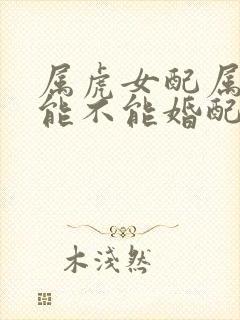 属虎女配属
能不能婚配
木淺然